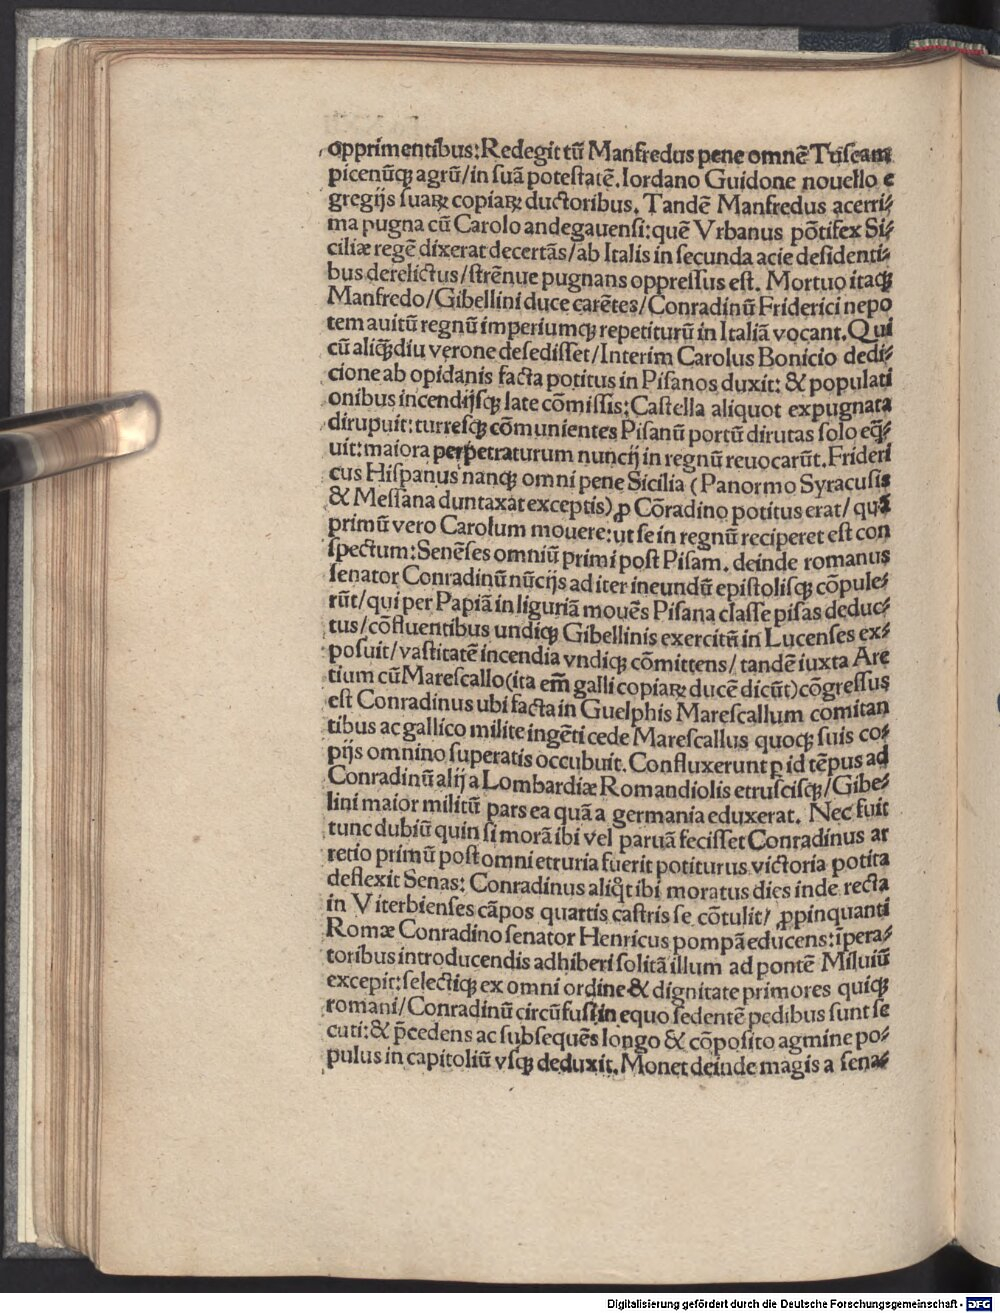 opprimentibus: Redegit tũ Manfredus pene omnẽ Tuscam
picenũqꝫ agrũ/in suã potestatẽ. Iordano Guidone nouello e
gregijs suaꝝ copiaꝝ ductoribus. Tandẽ Manfredus acerri⸗
ma pugna cũ Carolo andegauensi: quẽ Vrbanus põtifex Si⸗
ciliæ regẽ dixerat decertãs/ab Italis in secunda acie desidenti⸗
bus derelictus/strẽnue pugnans oppressus est. Mortuo itaqꝫ
Manfredo/Gibellini duce carẽtes/Conradinũ Friderici nepo
tem auitũ regnũ imperiumqꝫ repetiturũ in Italiã vocant. Qui
cũ aliqꝫdiu verone desedisset/Interim Carolus Bonicio dedi⸗
cione ab opidanis facta potitus in Pisanos duxit: & populati
onibus incendijsqꝫ late cõmissis: Castella aliquot expugnata
dirupuit: turresqꝫ cõmunientes Pisanũ portũ dirutas solo eq̃⸗
uit: maiora perpetraturum nuncij in regnũ reuocarũt. Frideri
cus Hispanus nanqꝫ omni pene Sicilia (Panormo Syracusis
& Messana duntaxat exceptis) ꝓ Cõradino potitus erat/ quã
primũ vero Carolum mouere: ut se in regnũ reciperet est con
spectum: Senẽses omniũ primi post Pisam. deinde romanus
senator Conradinũ nũcijs ad iter ineundũ epistolisqꝫ cõpule⸗
rũt/qui per Papiã in liguriã mouẽs Pisana classe pisas deduc⸗
tus/cõfluentibus undiqꝫ Gibellinis exercitũ in Lucenses ex⸗
posuit/vastitatẽ incendia vndiqꝫ cõmittens/ tandẽ iuxta Are
tium cũ Marescallo(ita em̃ galli copiaꝝ ducẽ dicũt)cõgressus
est Conradinus ubi facta in Guelphis Marescallum comitan
tibus ac gallico milite ingẽti cede Marescallus quoqꝫ suis co⸗
pijs omnino superatis occubuit. Confluxerunt ꝑ id tẽpus ad
Conradinũ alij a Lombardiæ Romandiolis etruscisqꝫ/Gibe⸗
lini maior militũ pars ea quã a germania eduxerat. Nec fuit
tunc dubiũ quin si morã ibi vel paruã fecisset Conradinus ar
retio primũ post omni etruria fuerit potiturus victoria potita
deflexit Senas: Conradinus aliq̃t ibi moratus dies inde recta
in Viterbienses cãpos quartis castris se cõtulit/ ꝓpinquanti
Romæ Conradino senator Henricus pompã educens: ĩpera⸗
toribus introducendis adhiberi solitã illum ad pontẽ Miluiũ
excepit: selectiqꝫ ex omni ordine & dignitate primores quiqꝫ
romani/Conradinũ circũfusi in equo sedentẽ pedibus sunt se
cuti: & p̃cedens ac subsequẽs longo & cõposito agmine po⸗
pulus in capitoliũ vsqꝫ deduxit. Monet deinde magis a sena⸗
Digitalisierung gefördert durch die Deutsche Forschungsgemeinschaft - DFG